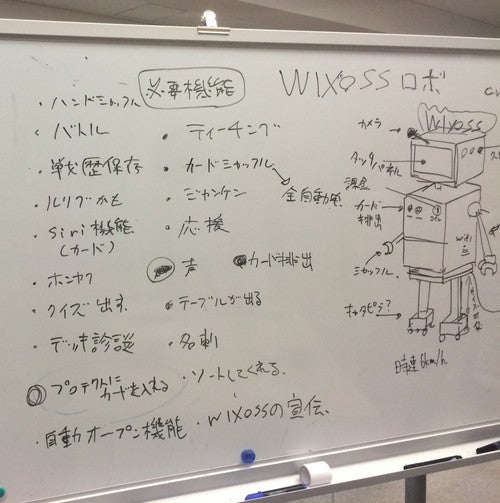 必要機能
WIXOSS ロボ
・ハンドシャッフル
・バトル
・戦歴保存
・ルリグがも
・siri 機能
(カード)
・ホンヤク
・クイズ出す
・デッキ診談
プロテクトに
カードを入れる
・自動オープン機能
・ティーチング
・カードシャッフル
全自動
・ジャンケン
・応援
声
カード排出
・テーブルが出る
・名刺
・ソートしてくれる
・WIXOSSの宣伝
WIXOSS
カメラ
タッチパネル
課金
カード
排出
シャッフル
キャタピラ?
時速6km/h